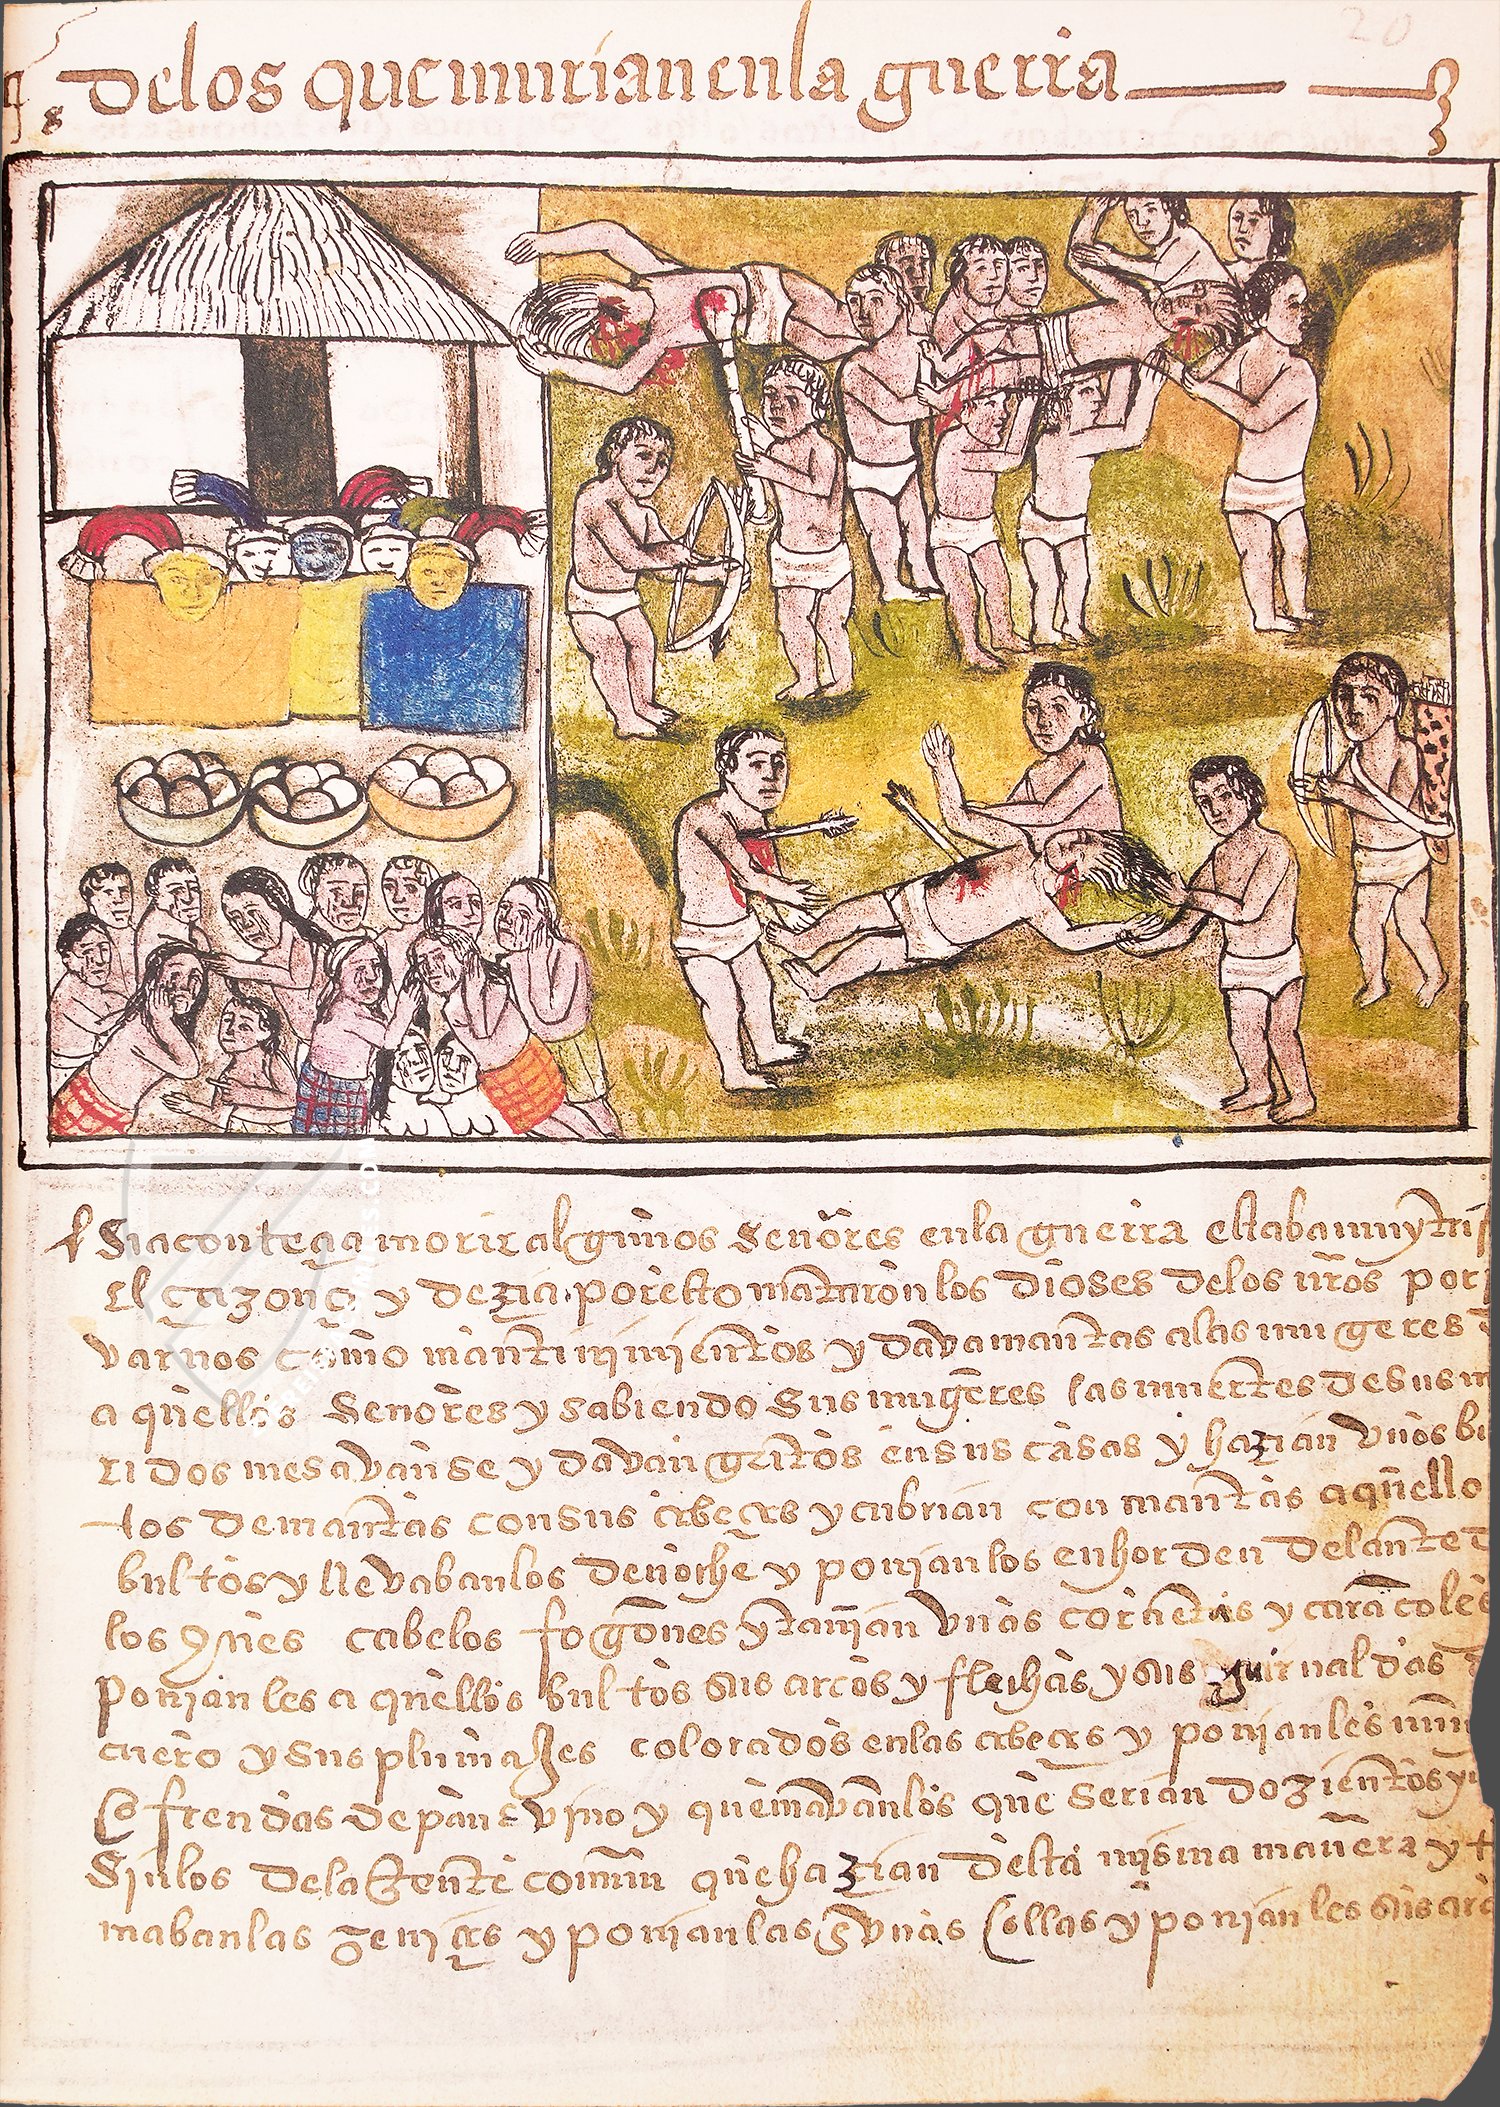 20
8 delos que murian en la guerra
Si acontecia morir algunos Señores en la guerra estaba muy tris
El caçonçi y dezia por esto mataron los dioses de los nros por
varnos como mantinimientos y dava mantas a las mugeres d
aquellos Señores y sabiendo sus mugeres las muertes de sus ma
ridos mesavanse y davan gritos en sus casas y hazian unos bu
tos de mantas con sus cabeças y cubrian con mantas aquello
bultos y llevabanlos de noche y ponianlos en horden delante d
los ques cabe los fogones y tañian unas cornetas y caracoles
ponianles a quellos bultos sus arcos y flechas y sus guirnaldas d
cuero y sus plumajes colorados en las cabeças y ponianles mu
ofrendas de pan e vino y quemavanlos que serian dozientos y
Sin los de la gente comun que hazian desta misma manera y t
maban las zeniças y ponianlas en unas ollas y ponianles sus arc